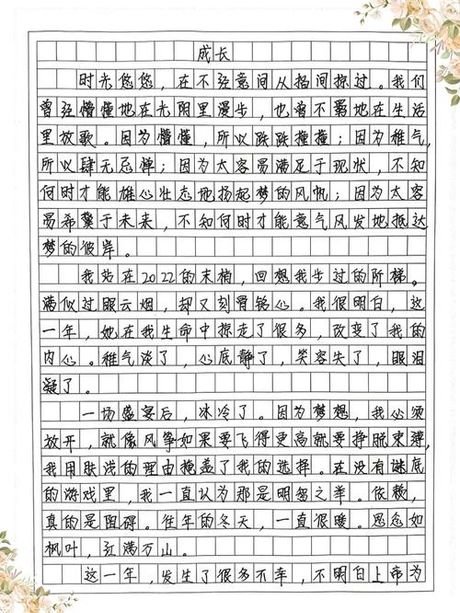 成长
时光悠悠，在不经意间从指间掠过。我们
曾经懵懂地在光阴里漫步，也曾不羁地在生活
里放歌。因为懵懂，所以跌跌撞撞；因为稚气，
所以肆无忌惮；因为太容易满足于现状，不知
何时才能雄心壮志地扬起梦的风帆；因为太容
易希冀于未来，不知何时才能意气风发地抵达
梦的彼岸。
我站在2022的末梢，回想我步过的阶梯。
满似过眼云烟，却又刻骨铭心。我很明白，这
一年，她在我生命中掠走了很多，改变了我的
内心。稚气淡了，心底静了，笑容失了，眼泪
凝了。
一场盛宴后，冰冷了。因为梦想，我必须
放开，就像风筝如果要飞得更高就要挣脱束缚，
我用肤浅的理由掩盖了我的选择。在没有谜底
的游戏里，我一直认为那是明智之举。依赖，
真的是阻碍。往年的冬天，一直很暖。思念如
枫叶，红满万山。
这一年，发生了很多不幸，不明白上帝为